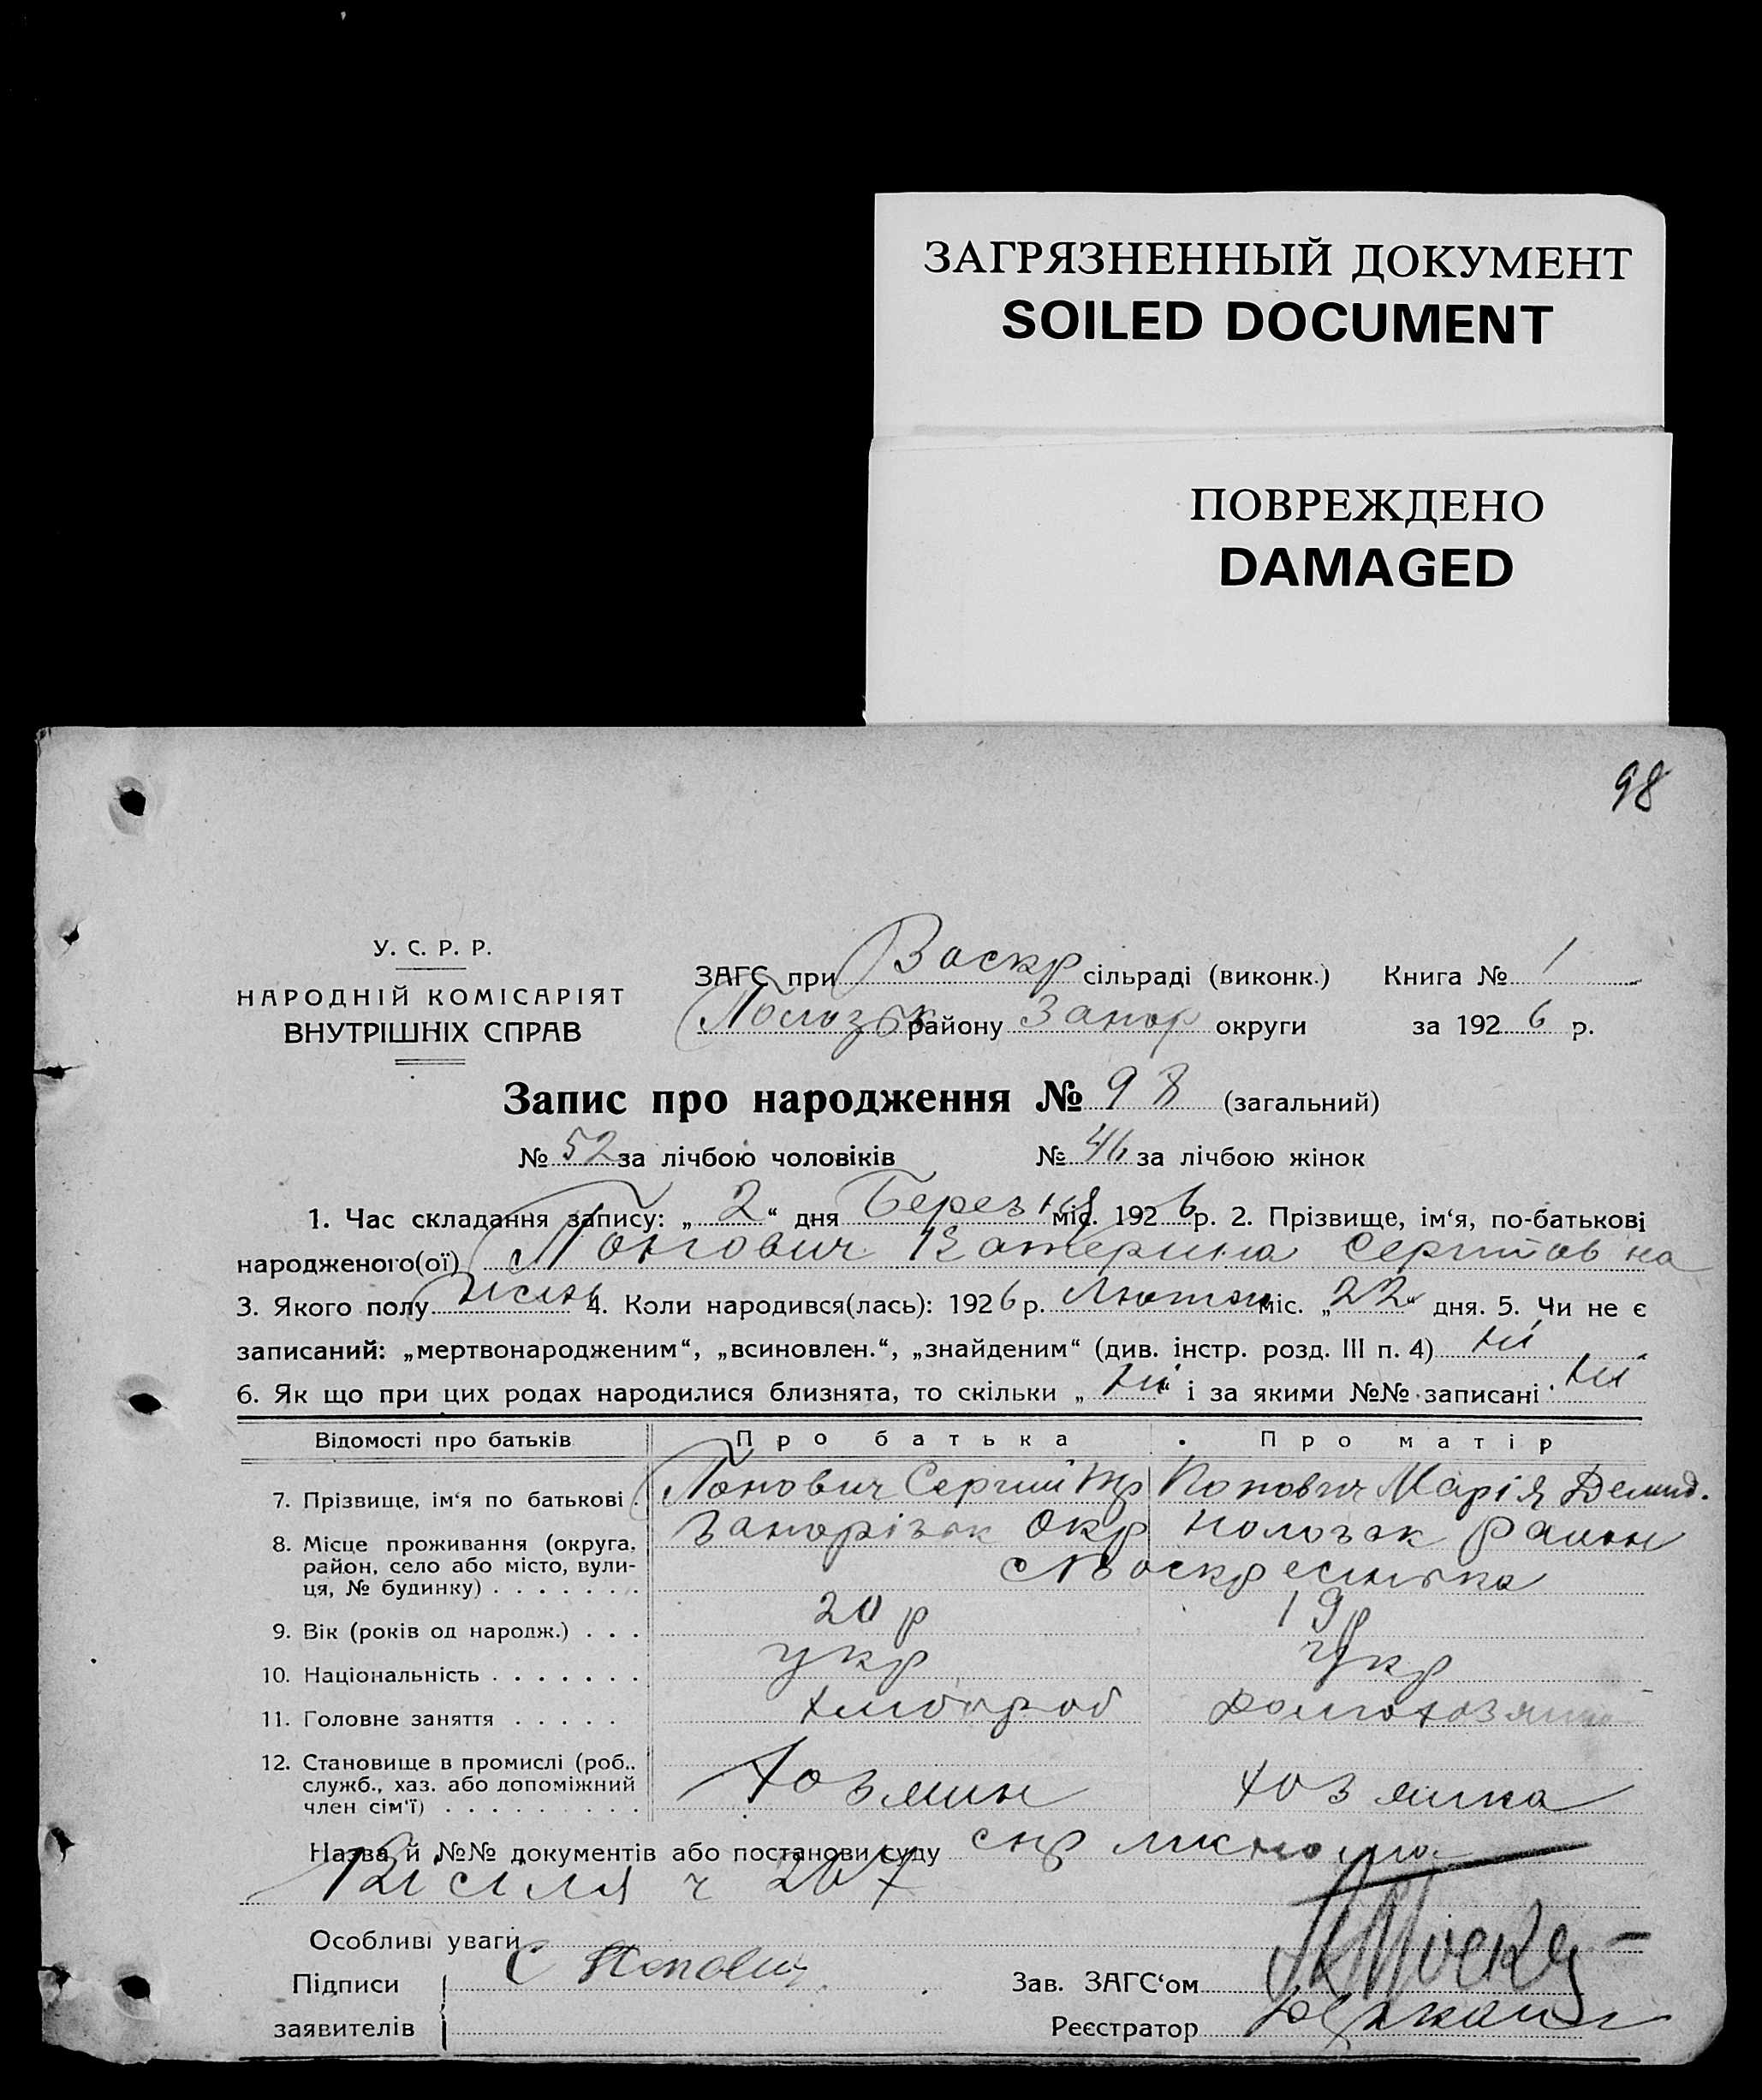 ЗАГРЯЗНЕННЫЙ ДОКУМЕНТ
SOILED DOCUMENT
ПОВРЕЖДЕНО
DAMAGED
98
У. С. Р. Р.
НАРОДНІЙ КОМІСАРІЯТ
ВНУТРІШНІХ СПРАВ
ЗАГС при Воскр сільраді (виконк.) Книга № 1
Пологзьк району Запор округи за 1926 р.
Запис про народження № 98 (загальний)
№ 52 за лічбою чоловіків № 46 за лічбою жінок
1. Час складання запису: „2“ дня Березня міс. 1926 р. 2. Прізвище, ім‘я, по-батькові
народженого(ої) Попович Катерина
3. Якого полу жін 4. Коли народився(лась): 1926 р. Лютий міс. „22“ дня. 5. Чи не є
записаний: „мертвонародженим“, „всиновлен.“, „знайденим“ (див. інстр. розд. III п. 4) ні
6. Як що при цих родах народилися близнята, то скільки „ні“ і за якими №№ записані ні
Відомості про батьків Про батька Про матір
7. Прізвище, ім‘я по батькові Попович Сергий Попович Марія Демид.
8. Місце проживання (округа, район, село або місто, вулиця, № будинку) Запорізьк Окр Пологзк район
с Воскресинвка
9. Вік (років од народж.) 20 р 19 р
10. Національність укр укр
11. Головне заняття хлибороб
12. Становище в промислі (роб., служб., хаз. або допоміжний член сім‘ї) хозяин хозяика
Назва й №№ документів або постанови суду
ч 207
Особливі уваги
Підписи С Попович Зав. ЗАГС‘ом
заявителів Реєстратор